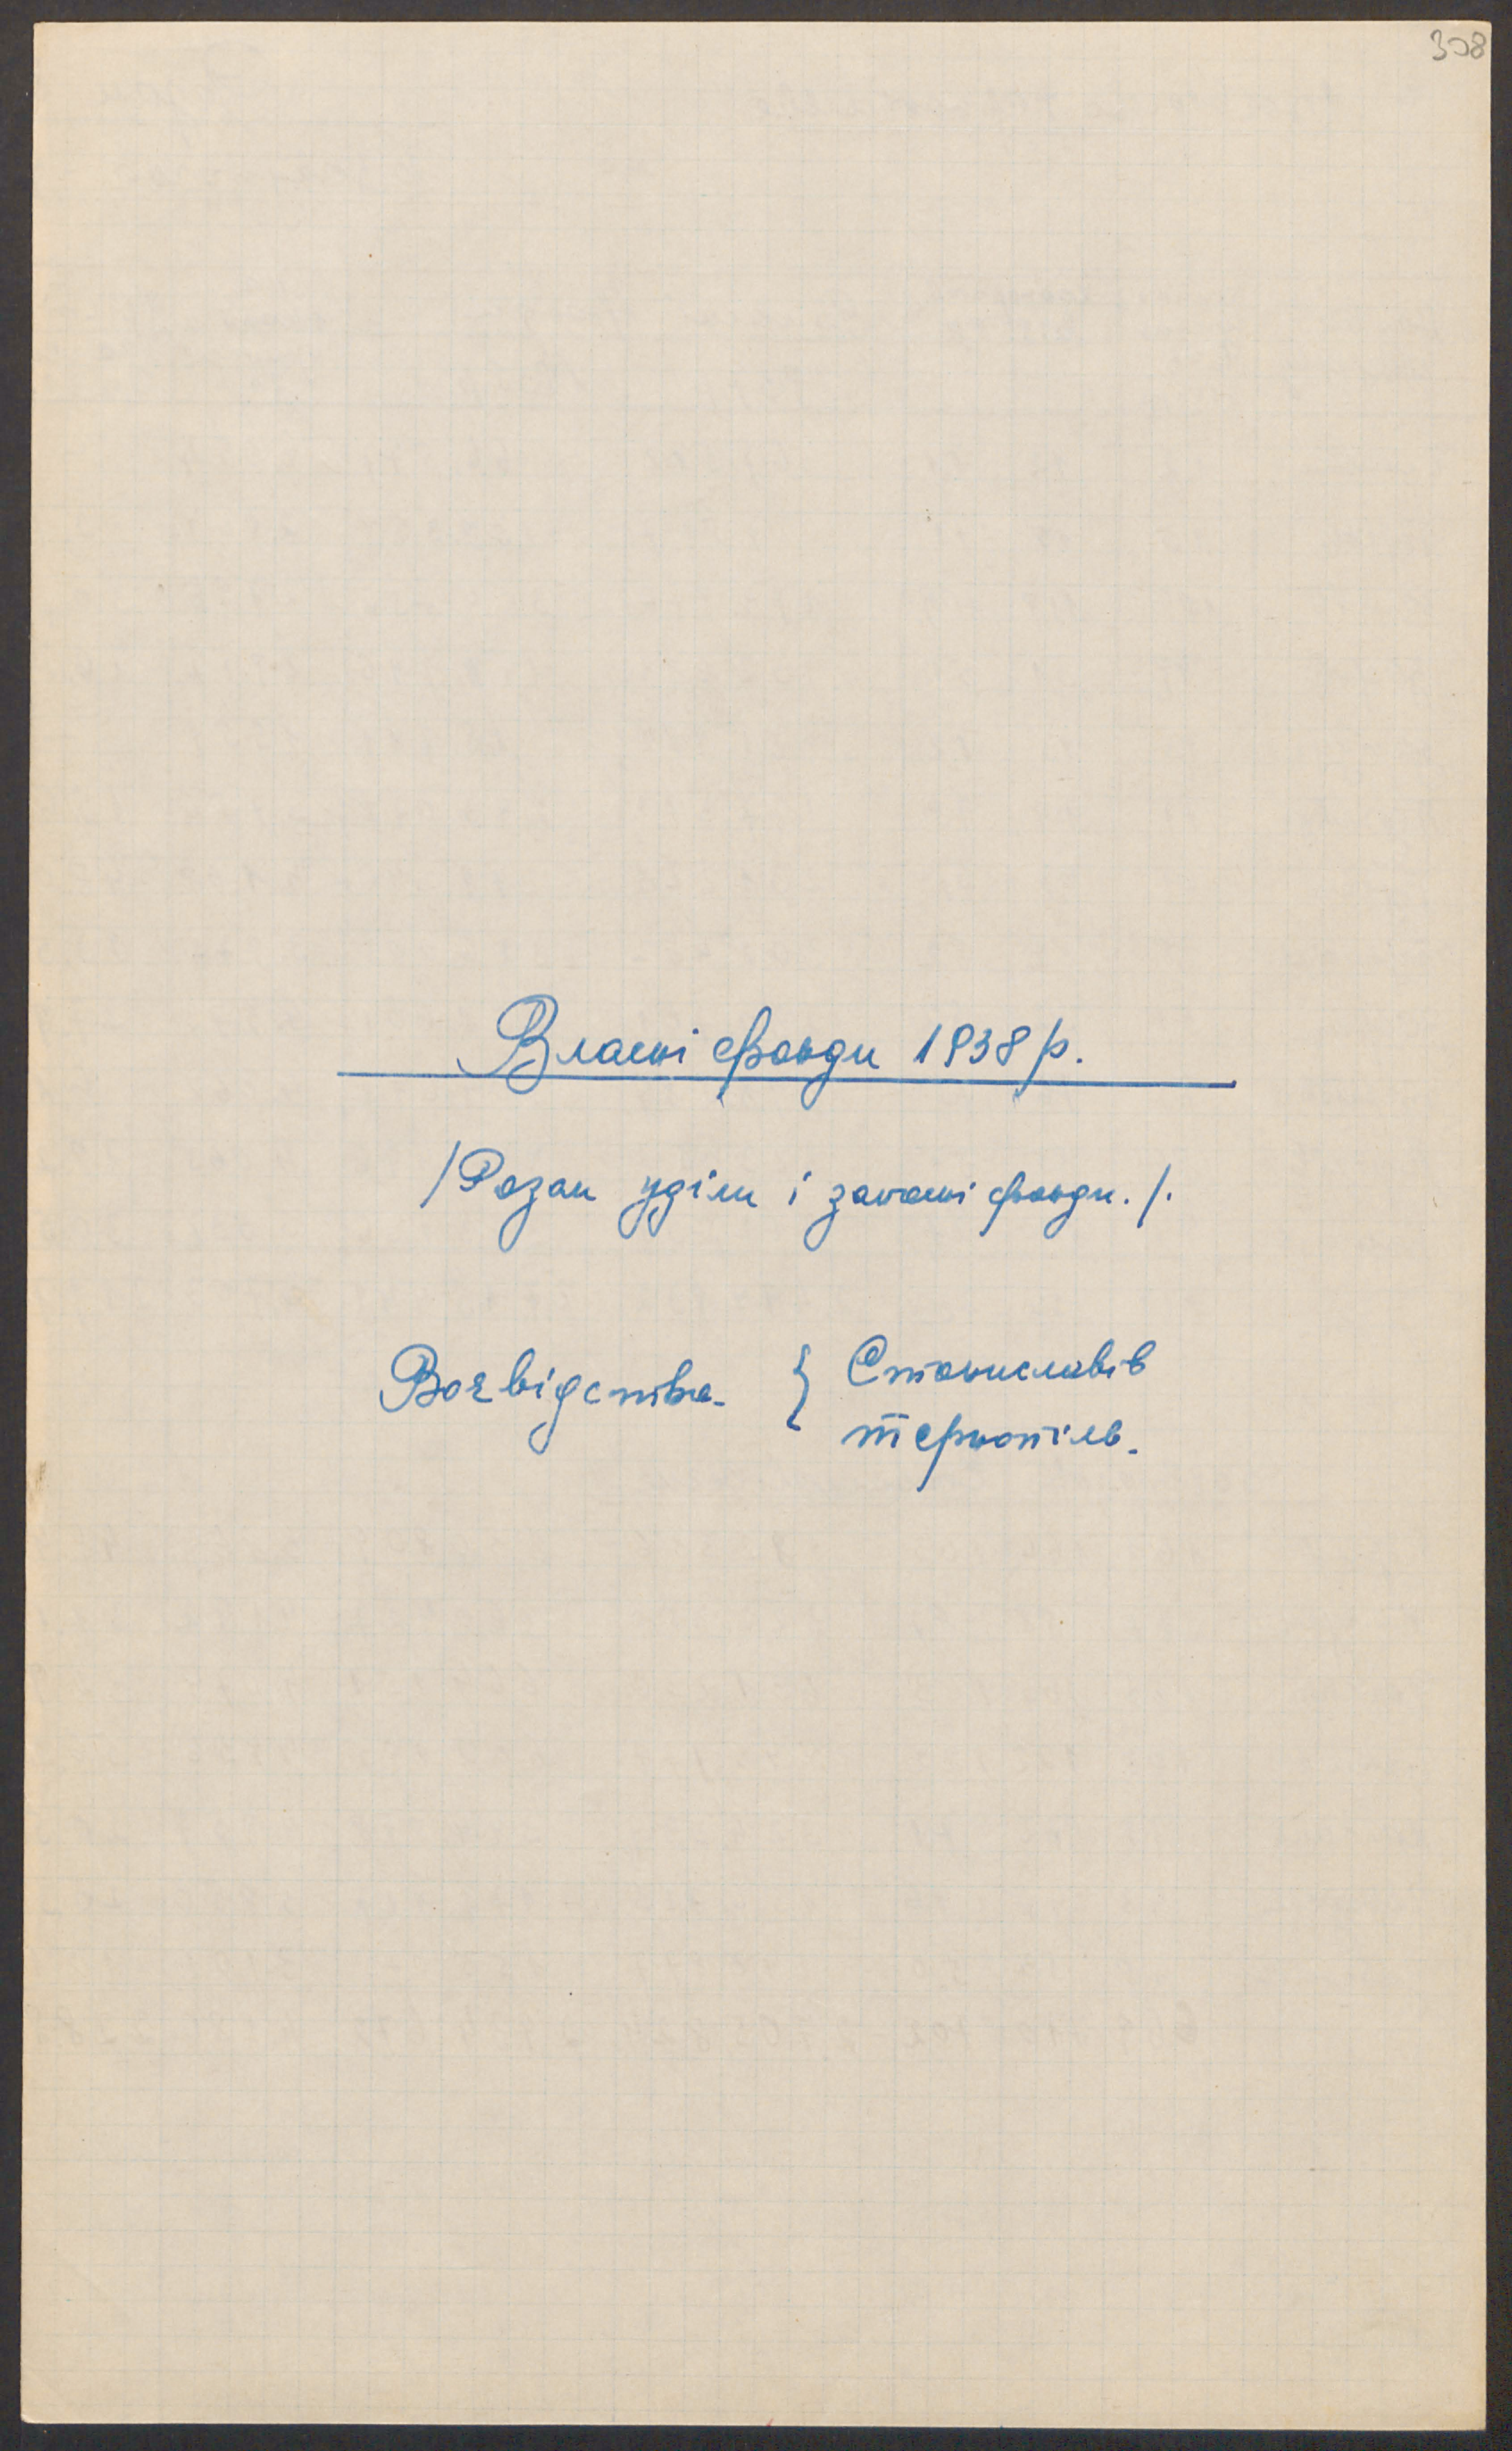 308
Власні фонди 1938 р.
/Разом уділи і запасні фонди./.
Воєвідства { Станиславів
Тернопіль.